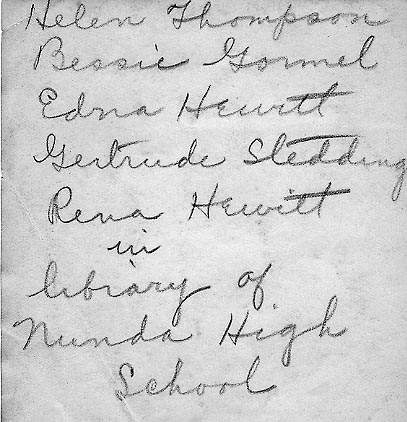 Helen Thompson
Bessie Gormel
Edna Hewitt
Gertrude Stedding
Rena Hewitt
in
library of
Nunda High
School